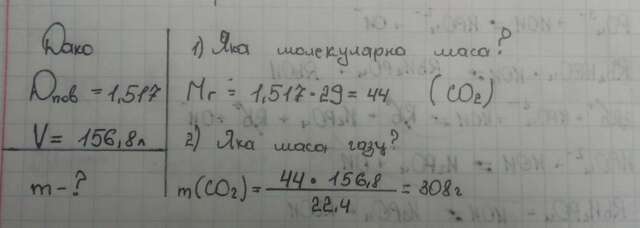 Дано
Dпов = 1,517
V = 156,8л
m - ?
1) Яка молекулярна маса?
Mr = 1,517 · 29 = 44 (CO2)
2) Яка маса газу?
m(CO2) = 44 · 156,8 / 22,4 = 308г